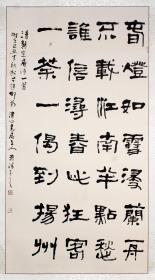 春鐙如雪浸蘭舟
不載江南半點愁
誰信尋春此狂客
一茶一偈到揚州